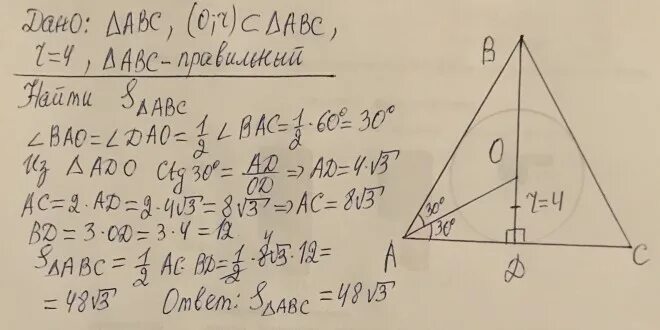 Дано: ΔABC, (O;r) ⊂ ΔABC,
r=4, ΔABC - правильный
Найти S ΔABC
∠BAO = ∠DAO = 1/2 ∠BAC = 1/2 · 60° = 30°
Из ΔADO Ctg 30° = AD/OD ⇒ AD = 4·√3
AC = 2·AD = 2·4√3 = 8√3 ⇒ AC = 8√3
BD = 3·OD = 3·4 = 12
4
S ΔABC = 1/2 AC·BD = 1/2 · 8√3 · 12 =
= 48√3 Ответ: S ΔABC = 48√3
B
O
30°
30°
r=4
A
D
C